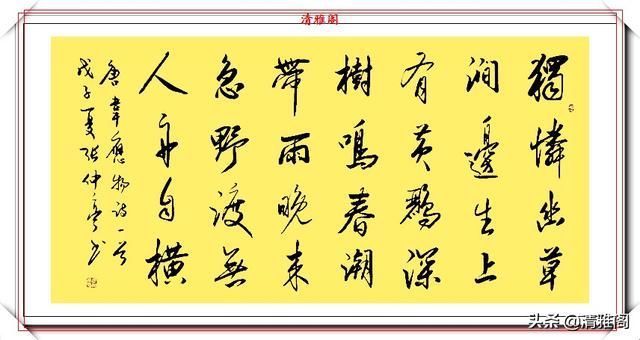 清雅阁
獨憐幽草
澗邊生上
有黃鸝深
樹鳴春潮
帶雨晚来
急野渡無
人舟自橫
唐韋應物詩一首
戊子夏張仲亭书
头条@清雅阁